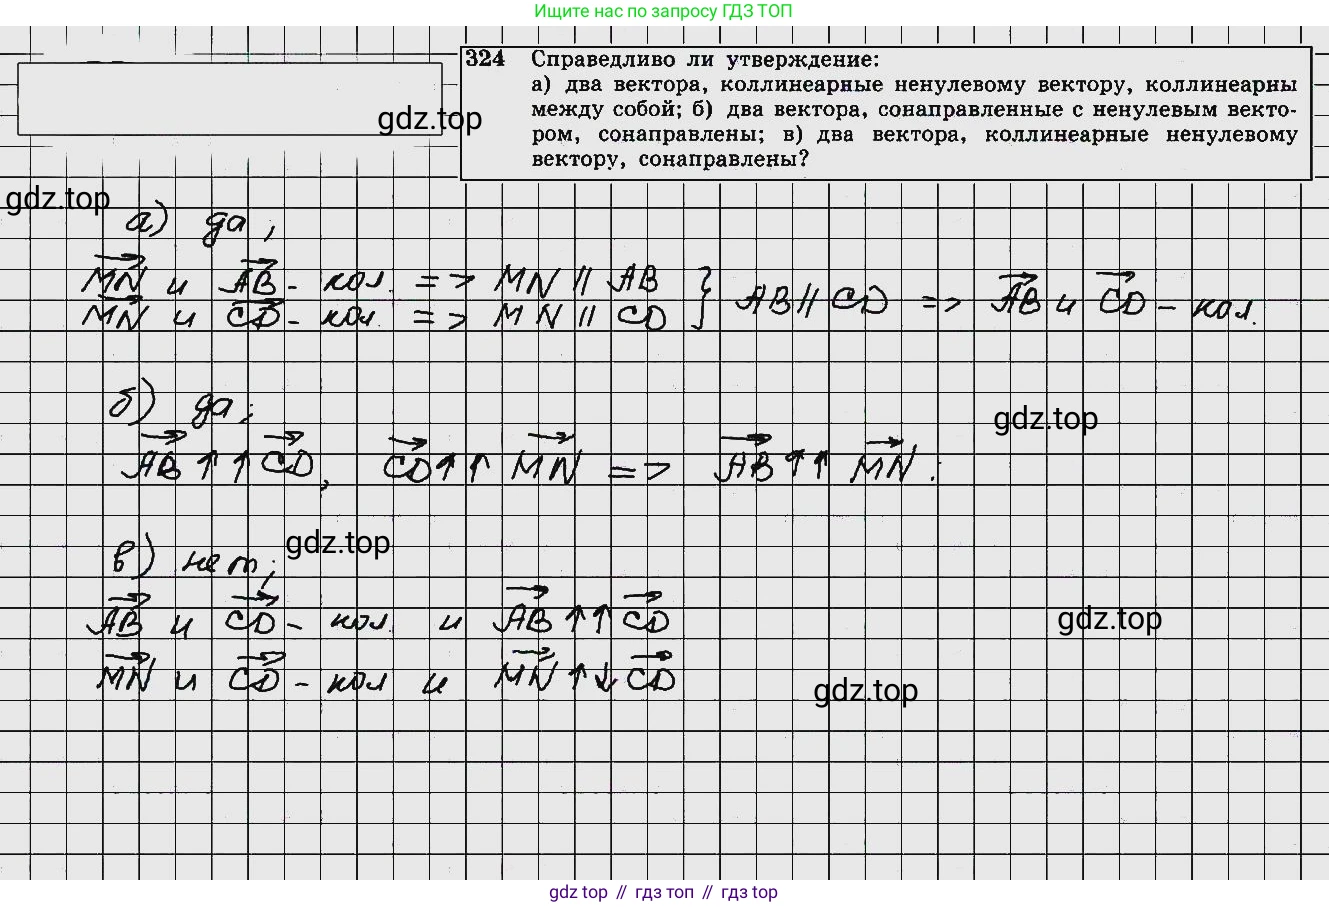 Ищите нас по запросу ГДЗ ТОП
324 Справедливо ли утверждение:
а) два вектора, коллинеарные ненулевому вектору, коллинеарны
между собой; б) два вектора, сонаправленные с ненулевым векто-
ром, сонаправлены; в) два вектора, коллинеарные ненулевому
вектору, сонаправлены?
gdz.top
gdz.top
а) да;
MN и AB - кол. => MN || AB
MN и CD - кол. => MN || CD } AB || CD => AB и CD - кол.
б) да;
gdz.top
AB ↑↑ CD, CD ↑↑ MN => AB ↑↑ MN.
gdz.top
в) нет;
AB и CD - кол. и AB ↑↑ CD
gdz.top
MN и CD - кол и MN ↑↓ CD
gdz.top
gdz top // гдз топ // гдз top